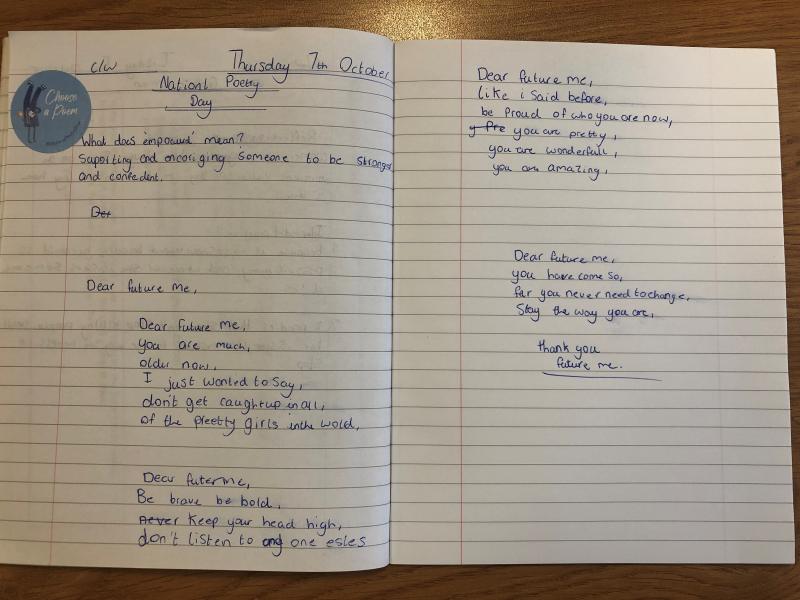 Choose
a Poem
C/W Thursday 7th October
Nationl Poetry
Day
What does 'empowerd' mean?
Suporting and encoriging someone to be stronger
and confedent.
Der
Dear future me,
Dear future me,
you are much,
older now,
I just wanted to say,
don't get caught up in all,
of the preetty girls in the wold,
Dear futer me,
Be brave be bold,
never keep your head high,
don't listen to any one esles
Dear future me,
like i said before,
be proud of who you are now,
you are pretty,
you are wonderfull,
you are amazing,
Dear future me,
you have come so,
far you never need to change,
Stay the way you are,
thank you
future me.